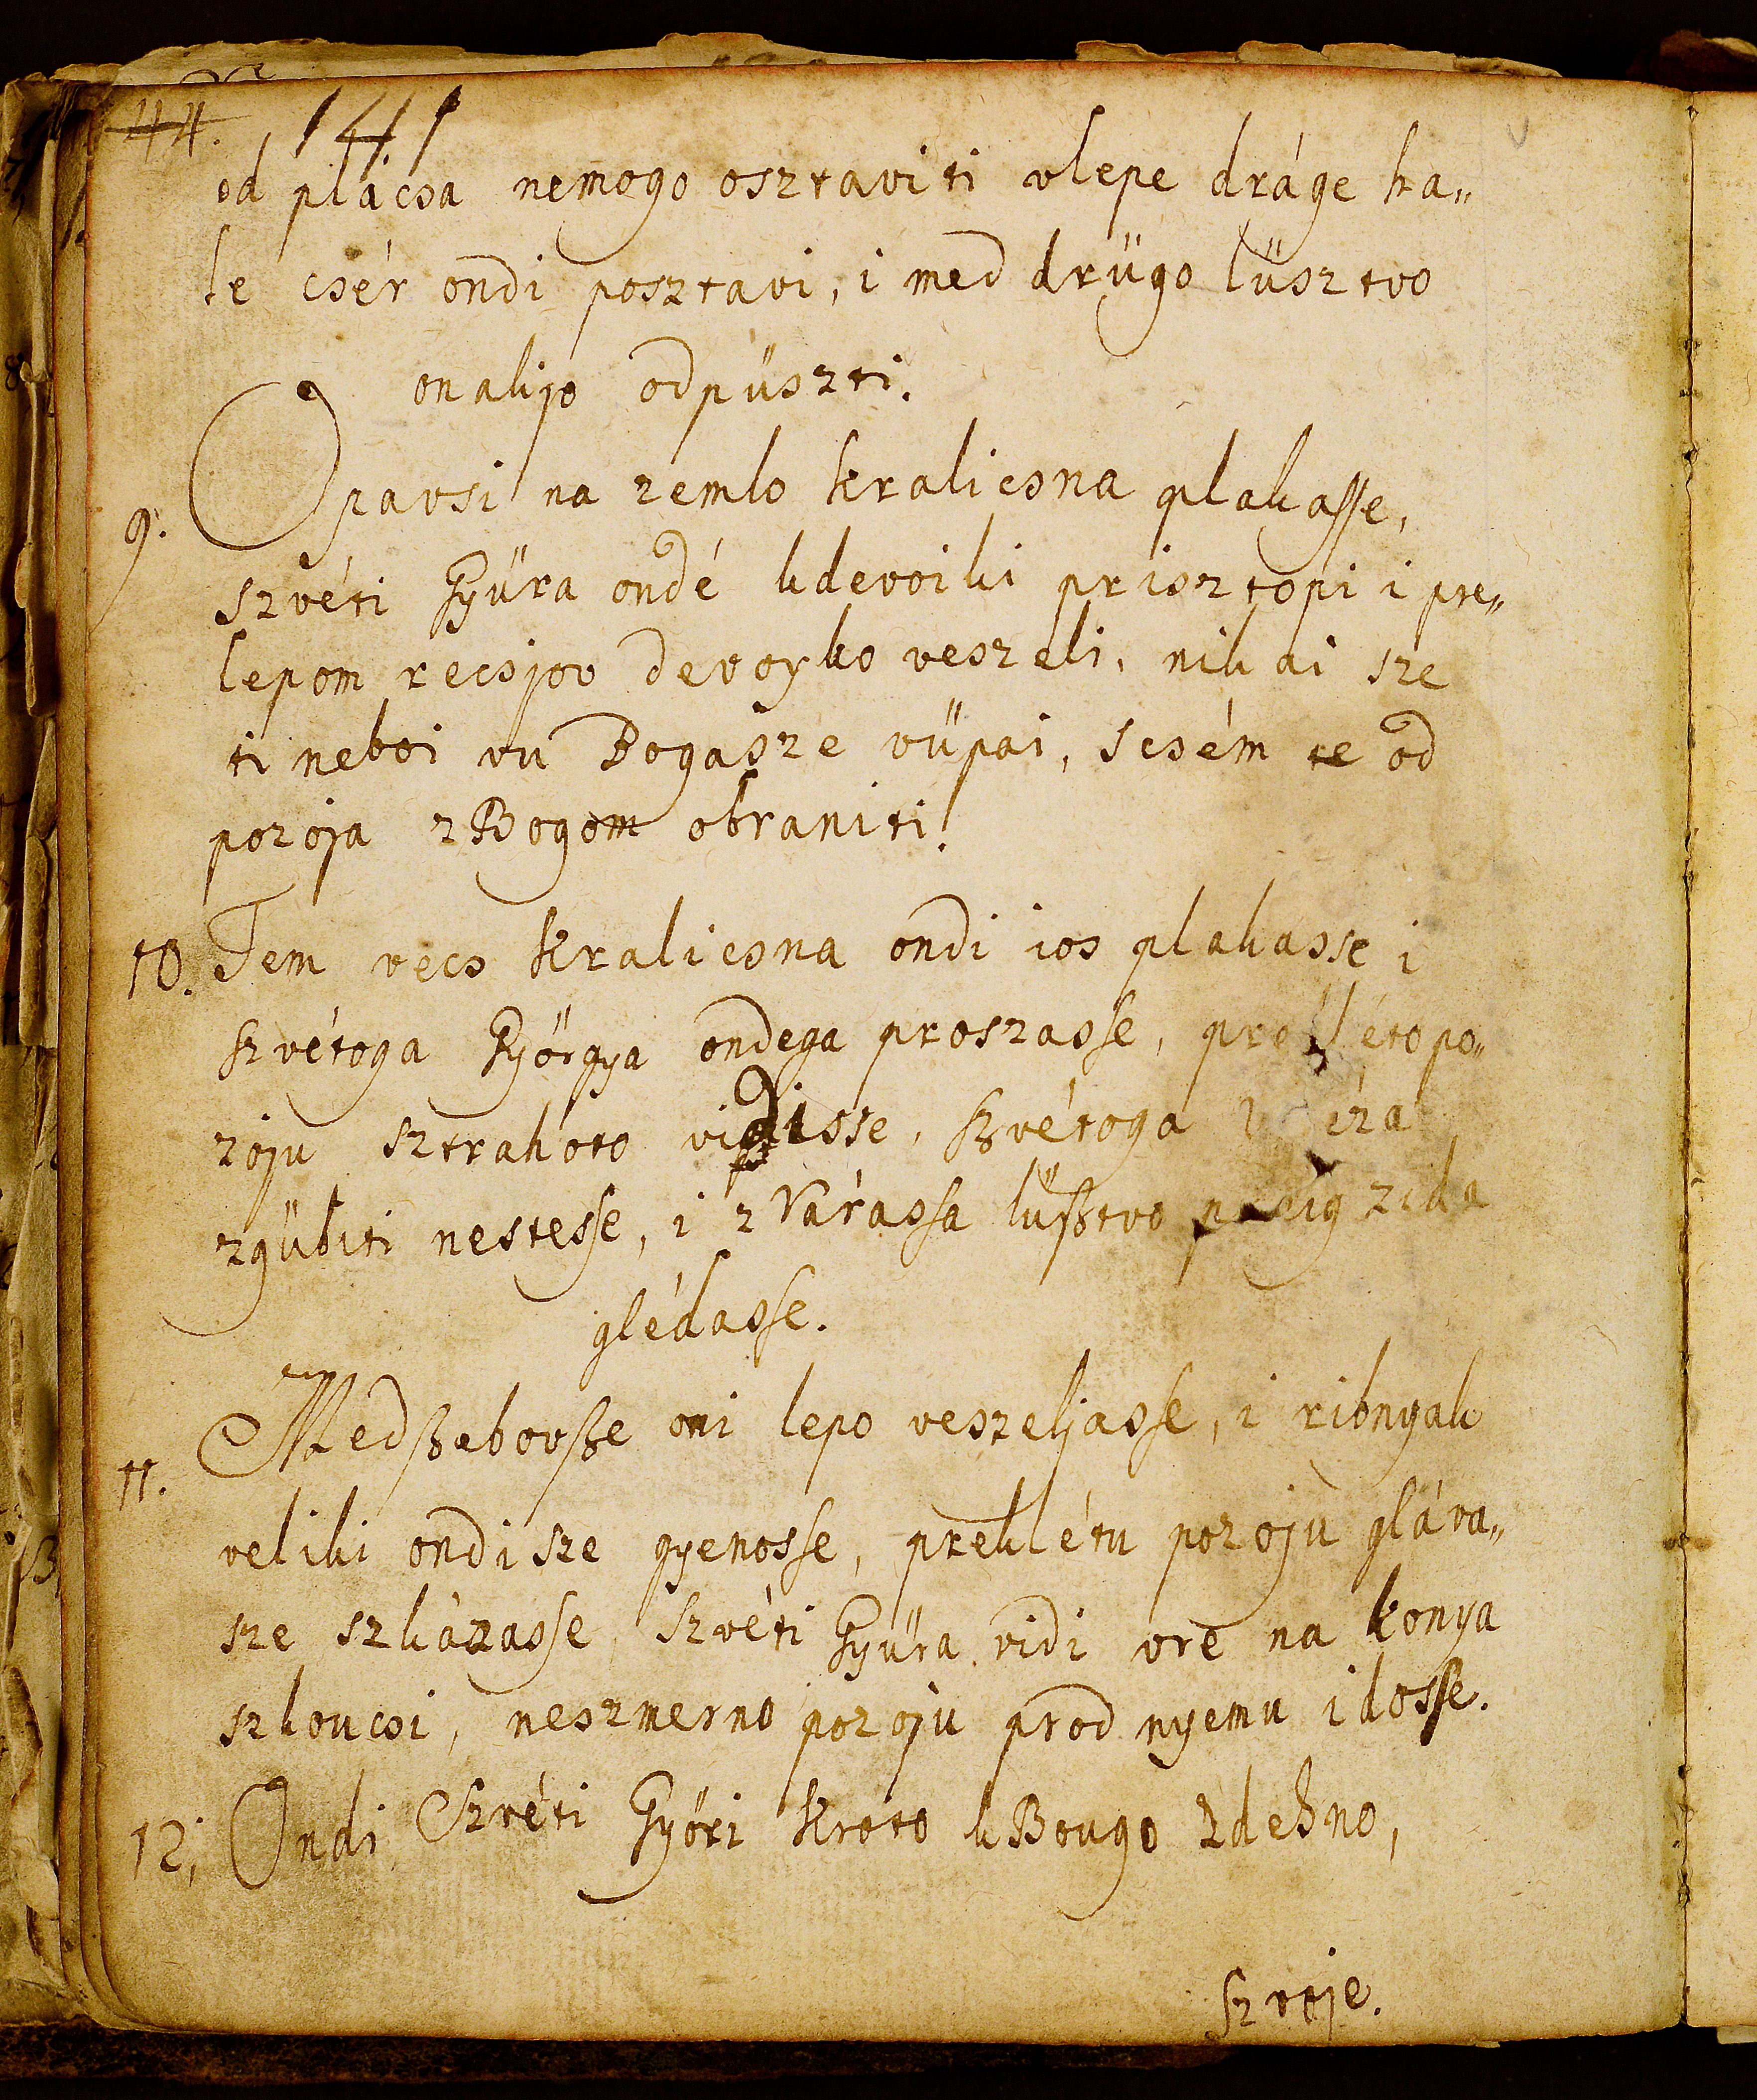 44. 141
od plácsa nemogo osztaviti vlepe dráge ha„
le csér ondi posztavi, i med drügo lüsztvo
onakjo odpüszti.
9. Opavsi na zemlo kralicsna plakasse,
szvéti Gyüra ondé kdevoiki prisztopi i pre„
lepom recsjov devoyko veszeli, nikai sze
ti neboi vu Bogasze vüpai, scsém te od
pozoja zBogom obraniti.
10. Tem vecs kralicsna ondi ios plakasse i
szvétoga Györgya ondega proszasse, po„
zoju sztrahoto vidisse, szvétoga
zgübiti nestesse, i zVárassa lüsztvo zida
glédasse.
11. Medszebovsze oni lepo veszeljasse, i ribnyak
veliki ondi sze gyenosse, preklétu pozoju gláva„
sze szkázasse, szvéti Gyüra vidi vre na konya
szkoucsi, neszmerno pozoju prod nyemu idosse.
12; Ondi Szvéti Györi kroto kBougo zdehno,
szvoje.